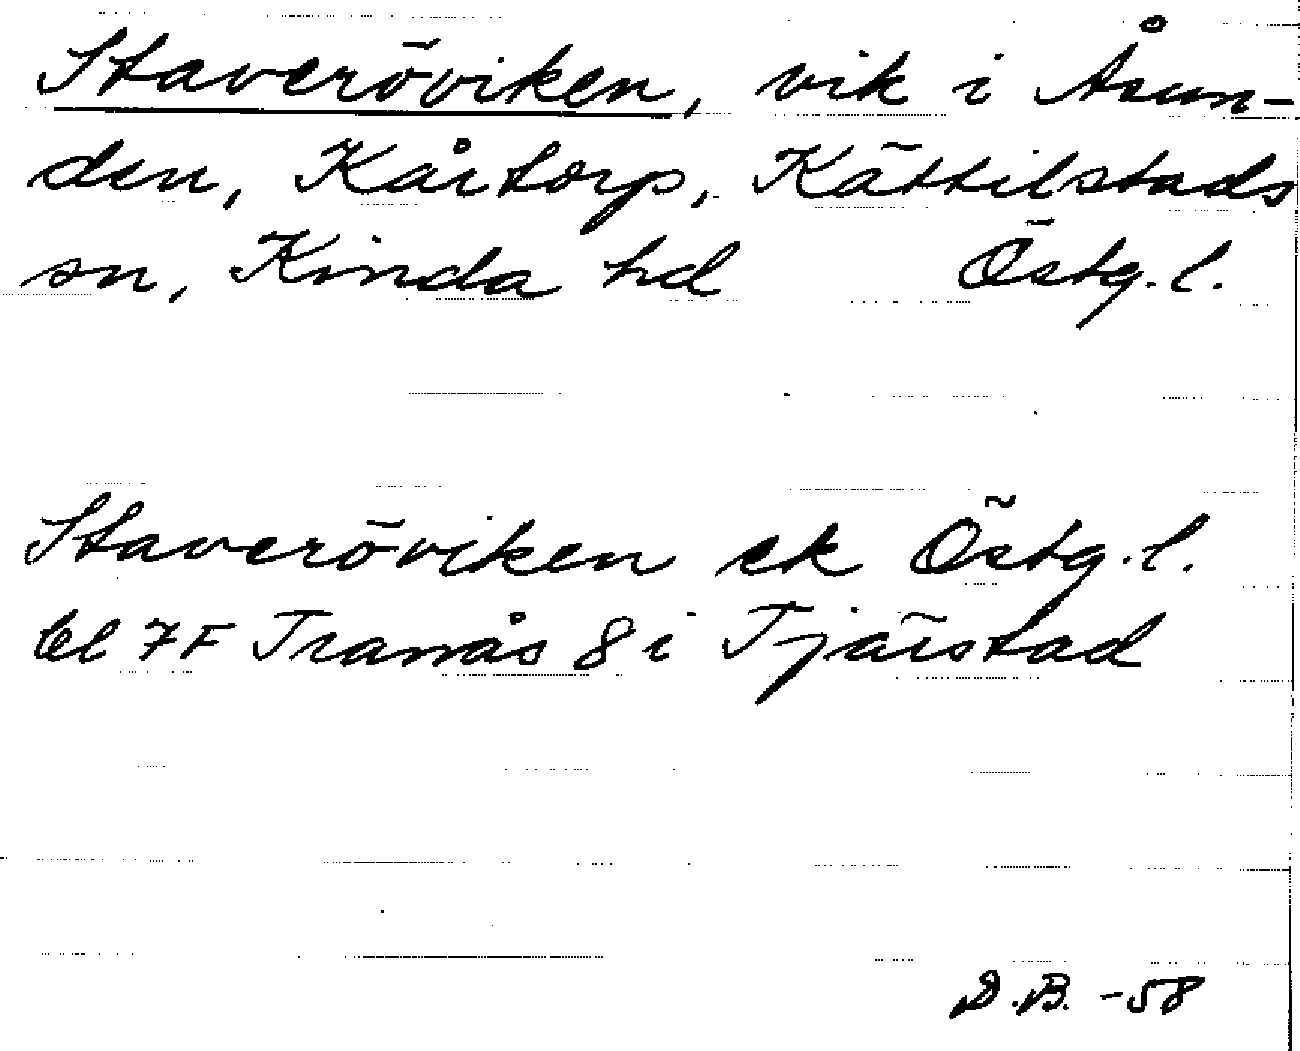 Staveröviken, vik i Åsun-
den, Kårtorp, Kättilstads
sn, Kinda hd Östg. l.
Staveröviken ek Östg. l.
bl 7F Tranås 8 i Tjärstad
D.B. -58